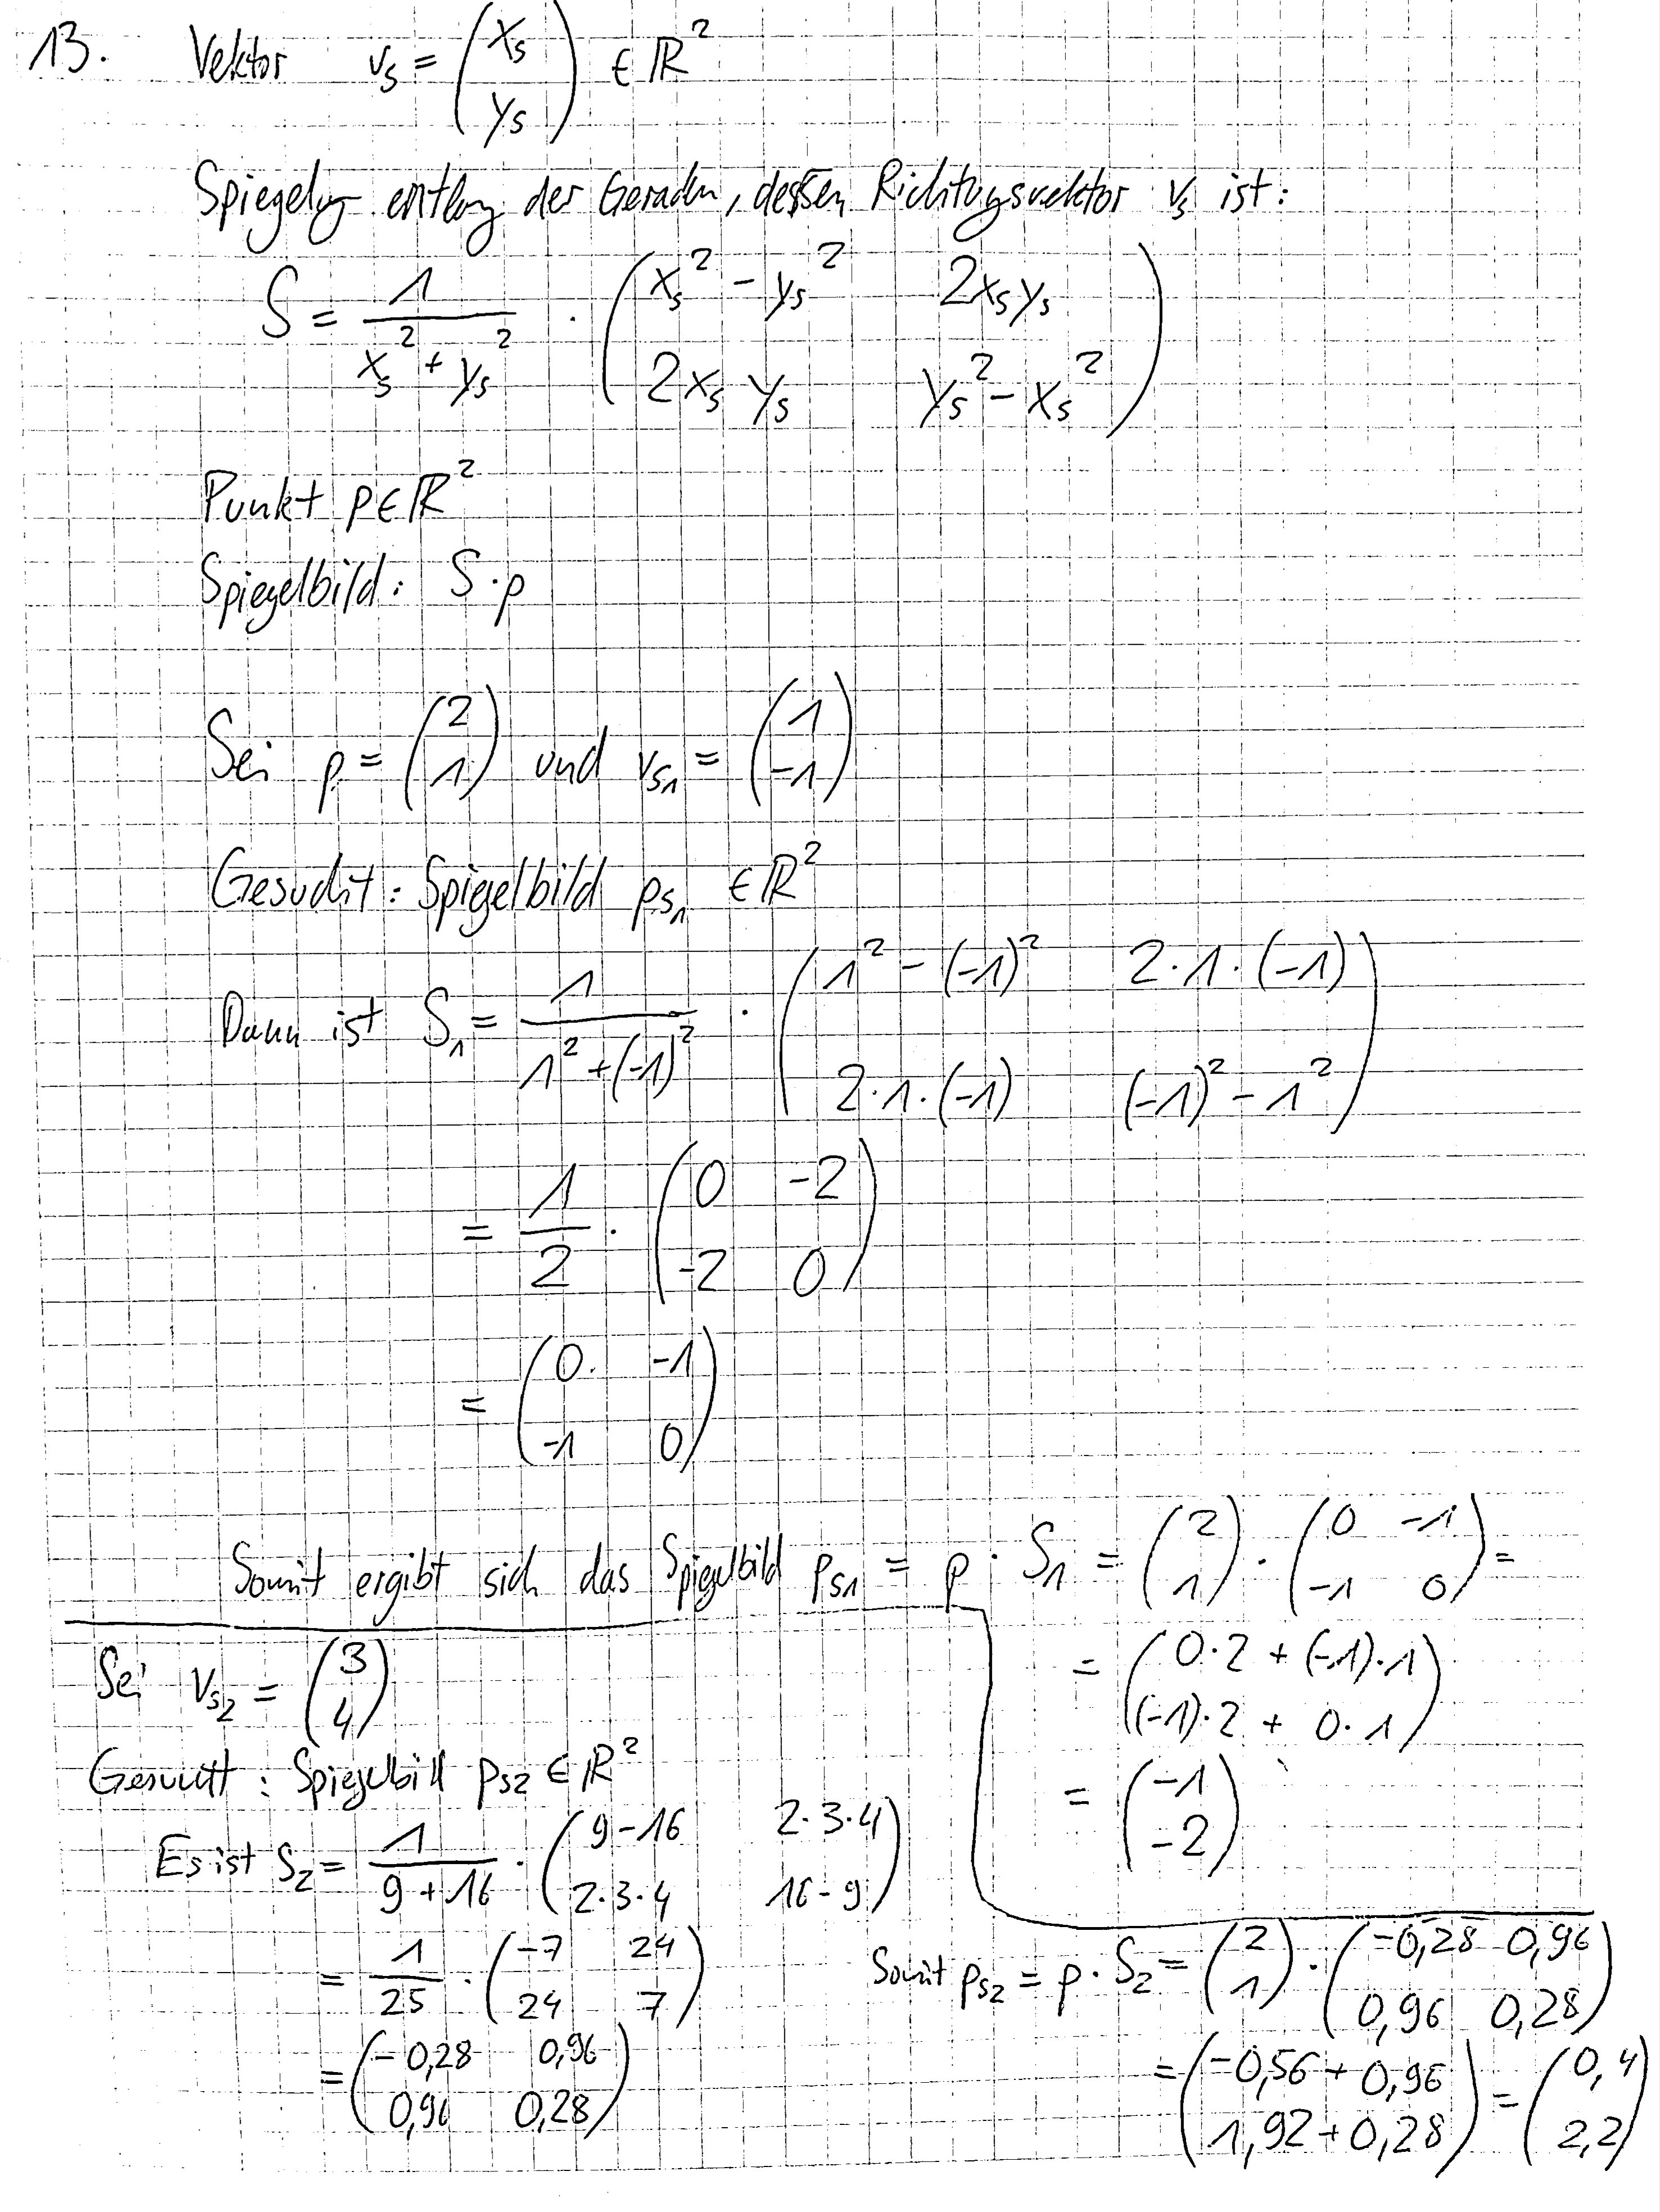 13. Vektor v_s = (x_s y_s) ∈ ℝ²
Spiegelug entlang der Geraden, dessen Richtugsvektor v_s ist:
S = 1/(x_s² + y_s²) · (x_s² - y_s² 2x_s y_s
2x_s y_s y_s² - x_s²)
Punkt p ∈ ℝ²
Spiegelbild: S · p
Sei p = (2 1) und v_s1 = (1 -1)
Gesucht: Spiegelbild p_s1 ∈ ℝ²
Dann ist S_1 = 1/(1² + (-1)²) · (1² - (-1)² 2·1·(-1)
2·1·(-1) (-1)² - 1²)
= 1/2 · (0 -2
-2 0)
= (0 -1
-1 0)
Somit ergibt sich das Spiegelbild p_s1 = p · S_1 = (2 1) · (0 -1
-1 0) =
= (0·2 + (-1)·1
(-1)·2 + 0·1)
= (-1
-2)
Sei v_s2 = (3 4)
Gesucht: Spiegelbild p_s2 ∈ ℝ²
Es ist S_2 = 1/(9+16) · (9-16 2·3·4
2·3·4 16-9)
= 1/25 · (-7 24
24 7)
= (-0,28 0,96
0,96 0,28)
Somit p_s2 = p · S_2 = (2 1) · (-0,28 0,96
0,96 0,28)
= (-0,56 + 0,96
1,92 + 0,28) = (0,4
2,2)